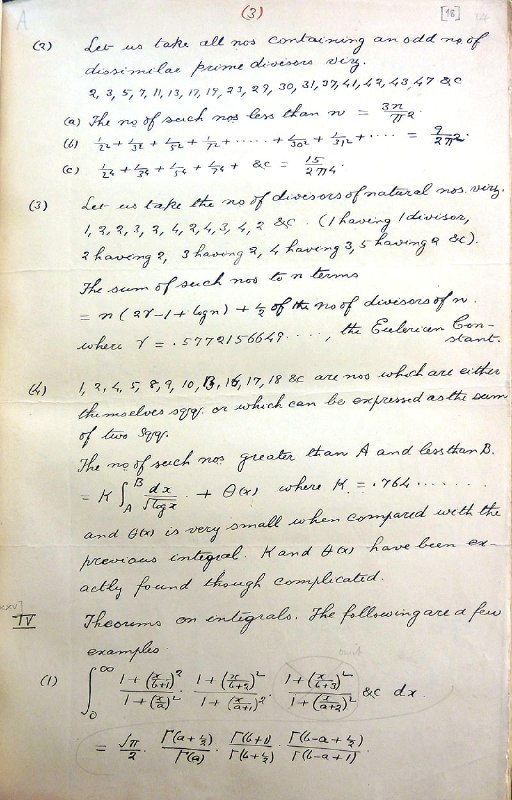 A (3) [18]
(2) Let us take all nos containing an odd no of
dissimilar prime divisors viz.
2, 3, 5, 7, 11, 13, 17, 19, 23, 29, 30, 31, 37, 41, 42, 43, 47 &c
(a) The no of such nos less than n = 3n/π².
(b) 1/2² + 1/3² + 1/5² + 1/7² + ······ + 1/30² + 1/31² + ···· = 9/2π².
(c) 1/2⁴ + 1/3⁴ + 1/5⁴ + 1/7⁴ + &c = 15/2π⁴.
(3) Let us take the no of divisors of natural nos. viz.
1, 2, 2, 3, 2, 4, 2, 4, 3, 4, 2 &c. (1 having 1 divisor,
2 having 2, 3 having 2, 4 having 3, 5 having 2 &c).
The sum of such nos to n terms
= n(2γ-1+log n) + ½ of the no of divisors of n.
where γ = .5772156649...., the Eulerian Con-
stant.
(4) 1, 2, 4, 5, 8, 9, 10, 13, 16, 17, 18 &c are nos which are either
themselves sqq. or which can be expressed as the sum
of two sqq.
The no of such nos greater than A and less than B.
= K ∫_A^B dx/√log x + θ(x) where K = .764.......
and θ(x) is very small when compared with the
previous integral. K and θ(x) have been ex-
actly found though complicated.
IV Theorems on integrals. The following are a few
examples.
omit
(1) ∫_0^∞ (1+(x/(b+1))²)/(1+(x/a)²) · (1+(x/(b+2))²)/(1+(x/(a+1))²) · (1+(x/(b+3))²)/(1+(x/(a+2))²) &c dx.
= √π/2 · Γ(a+½)/Γ(a) · Γ(b+1)/Γ(b+½) · Γ(b-a+½)/Γ(b-a+1).